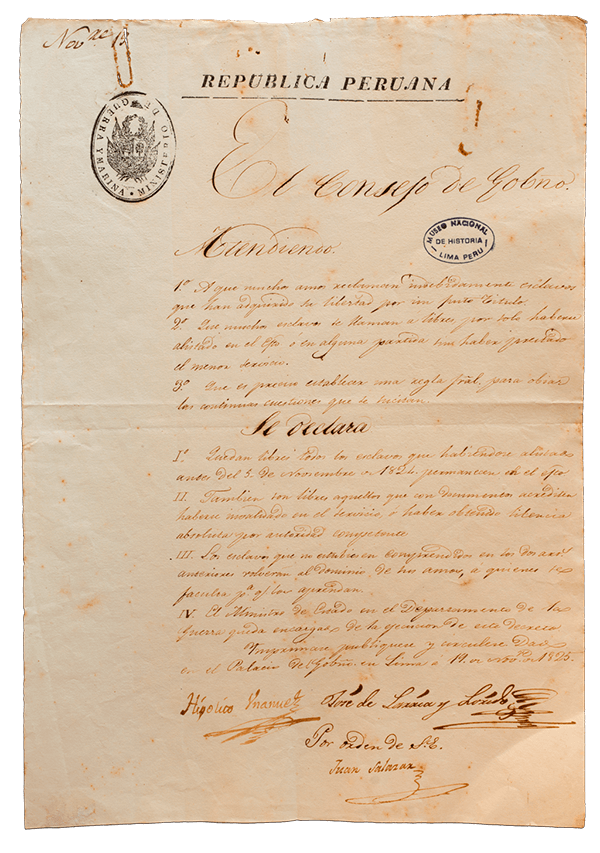 Nov.ͤ 13
REPUBLICA PERUANA
MINISTERIO DE GUERRA Y MARINA
El Consejo de Gobno.
MUSEO NACIONAL
DE HISTORIA
LIMA PERU
Atendiendo.
1º A que muchos amos reclaman indebidamente esclavos
que han adquirido su libertad por un justo titulo.
2º Que muchos esclavos se llaman a libres, por solo haberse
alistado en el Eto o en alguna partida sin haber prestado
el menor servicio.
3º Que es preciso establecer una regla gral. para obiar
las continuas cuestiones que se suscitan
Se declara
Iº Quedan libres todos los esclavos que habiendose alistado
antes del 5. de Noviembre de 1824. permanecen en el eto
II. Tambien son libres aquellos que con documentos acrediten
haberse invalidado en el servicio ó haber obtenido licencia
absoluta por autoridad competente
III. Los esclavos que no estubiesen comprendidos en los dos artˢ
anteriores volveran al dominio de sus amos, á quienes se
faculta pª q/ los aprendan.
IV. El Ministro de Estado en el Departamento de la
Guerra queda encargado de la ejecucion de este decreto
Imprimase publiquese y circulese Dado
en el Palacio del Gobno. en Lima a 19. de Nov.ͤ de 1825.
Hipolito Unanue
José de Larrea y Loredo
Por orden de S.E.
Juan Salazar